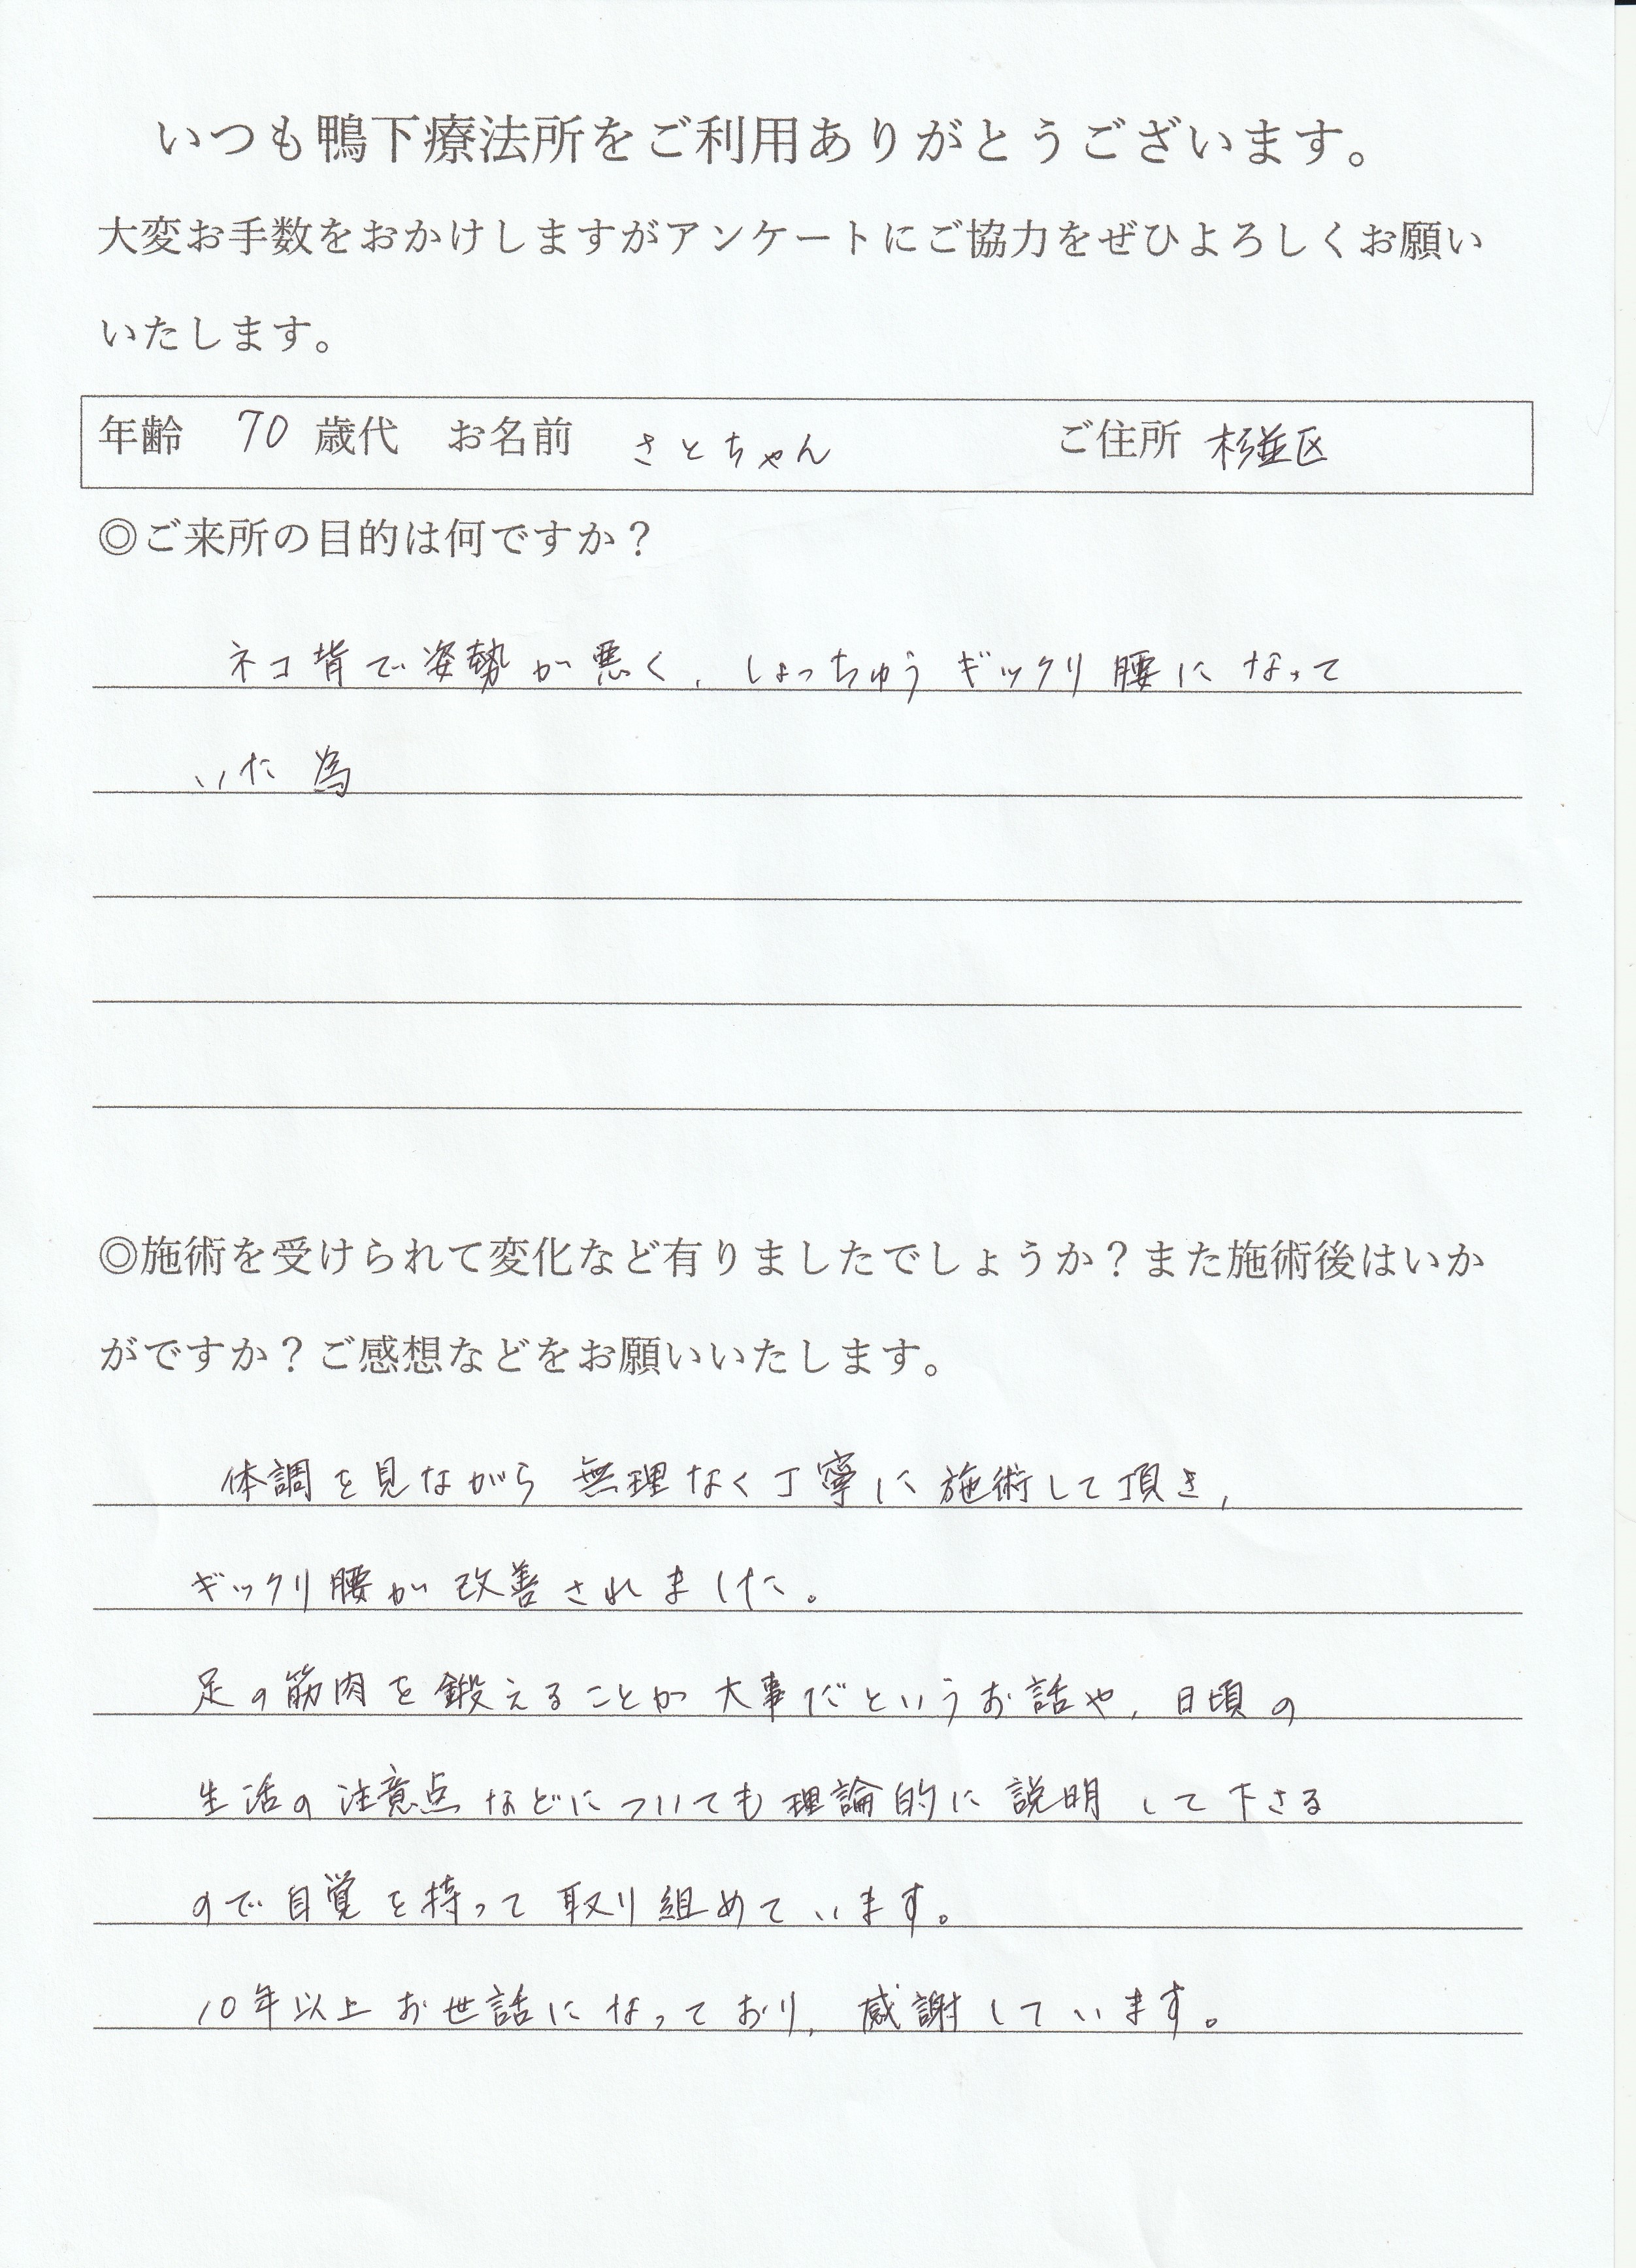 いつも鴨下療法所をご利用ありがとうございます。
大変お手数をおかけしますがアンケートにご協力をぜひよろしくお願い
いたします。
年齢 70 歳代 お名前 さとちゃん ご住所 杉並区
◎ご来所の目的は何ですか？
ネコ背で姿勢が悪く、しょっちゅうギックリ腰になって
いた為
◎施術を受けられて変化など有りましたでしょうか？また施術後はいか
がですか？ご感想などをお願いいたします。
体調を見ながら無理なく丁寧に施術して頂き、
ギックリ腰が改善されました。
足の筋肉を鍛えることが大事だというお話や、日頃の
生活の注意点などについても理論的に説明して下さる
ので自覚を持って取り組めています。
10年以上お世話になっており、感謝しています。